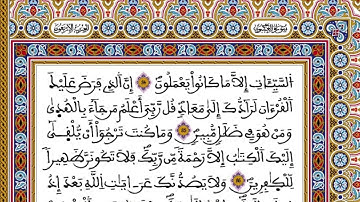 السَّيِّئَاتِ إِلَّا مَا كَانُوا۟ يَعْمَلُونَ إِنَّ ٱلَّذِى فَرَضَ عَلَيْكَ
ٱلْقُرْءَانَ لَرَآدُّكَ إِلَىٰ مَعَادٍ قُل رَّبِّىٓ أَعْلَمُ مَن جَآءَ بِٱلْهُدَىٰ
وَمَنْ هُوَ فِى ضَلَٰلٍ مُّبِينٍ وَمَا كُنتَ تَرْجُوٓا۟ أَن يُلْقَىٰٓ
إِلَيْكَ ٱلْكِتَٰبُ إِلَّا رَحْمَةً مِّن رَّبِّكَ فَلَا تَكُونَنَّ ظَهِيرًا
لِّلْكَٰفِرِينَ وَلَا يَصُدُّنَّكَ عَنْ ءَايَٰتِ ٱللَّهِ بَعْدَ إِذْ